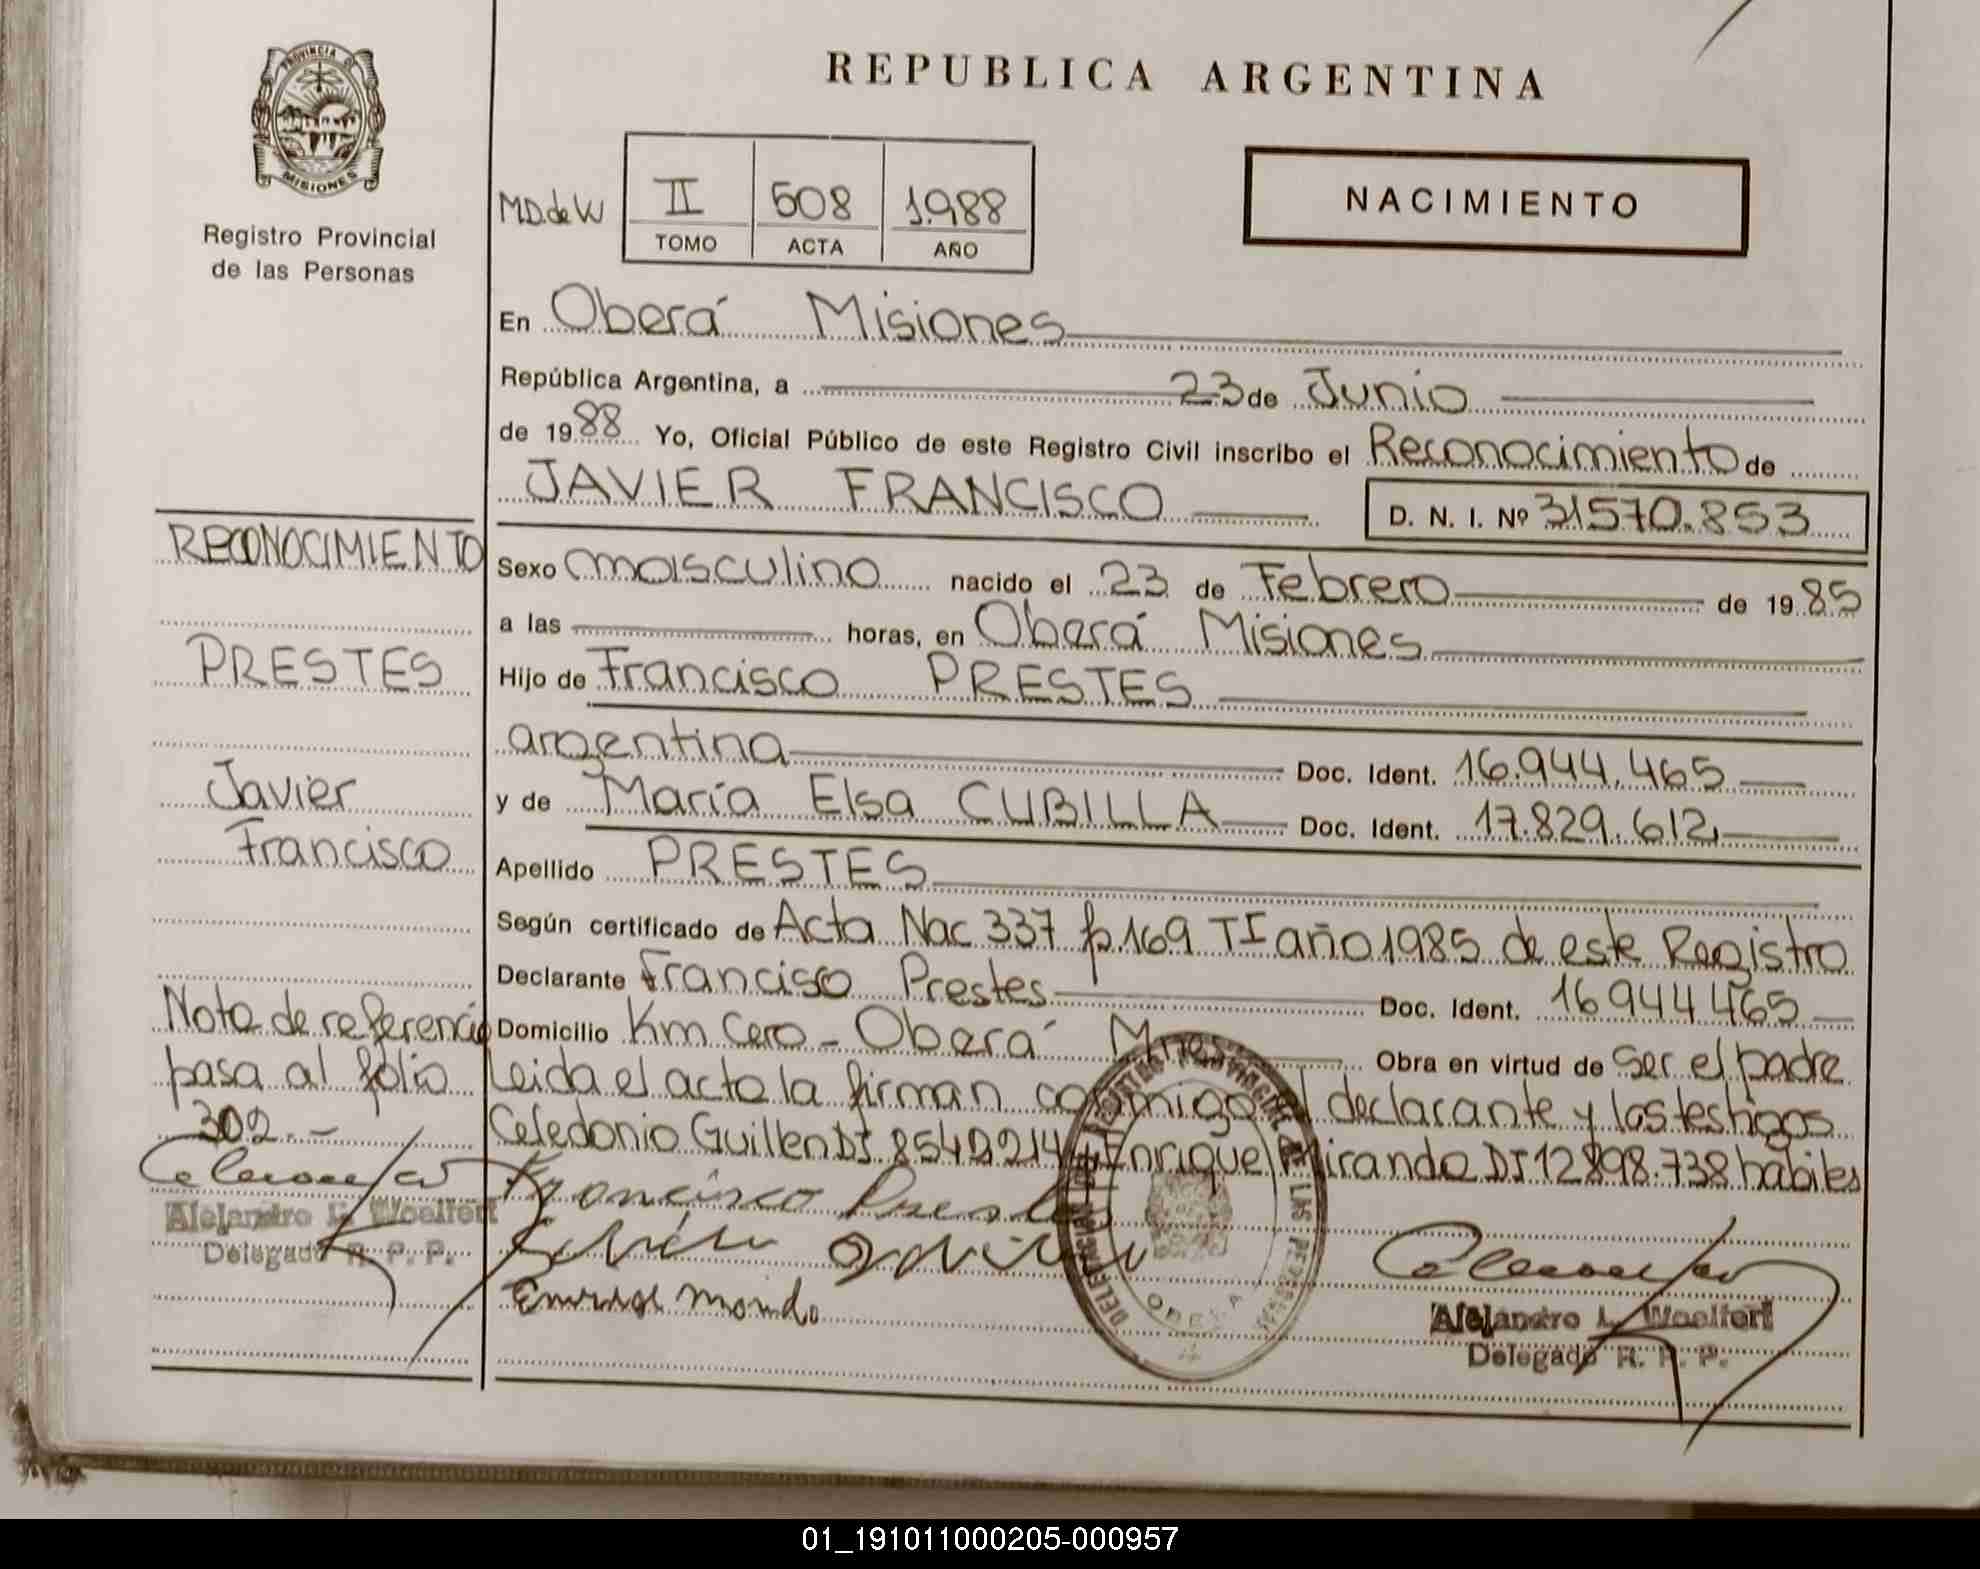 REPUBLICA ARGENTINA
PROVINCIA DE
MISIONES
Registro Provincial
de las Personas
M.D.de W
II 508 1.988
TOMO ACTA AÑO
NACIMIENTO
En Oberá Misiones
República Argentina, a 23 de Junio
de 1988 Yo, Oficial Público de este Registro Civil inscribo el Reconocimiento de
JAVIER FRANCISCO D. N. I. Nº 31570.853
Sexo masculino nacido el 23 de Febrero de 1985
a las horas, en Oberá Misiones
Hijo de Francisco PRESTES
argentina Doc. Ident. 16.944.465
y de María Elsa CUBILLA Doc. Ident. 17.829.612
Apellido PRESTES
Según certificado de Acta Nac 337 fº 169 TI año 1985 de este Registro
Declarante Francisco Prestes Doc. Ident. 16944465
Domicilio Km Cero - Oberá Mnes Obra en virtud de ser el padre
Leida el acta la firman conmigo el declarante y los testigos
Celedonio Guillen DI 8542214 y Enrique Miranda DI 12898.738 habiles
Francisco Prest
Alejandro L. Woelfert
Delegado R. P. P.
RECONOCIMIENTO
PRESTES
Javier
Francisco
Nota de referencia
pasa al folio
302.-
Alejandro L. Woelfert
Delegado R. P. P.
01_191011000205-000957